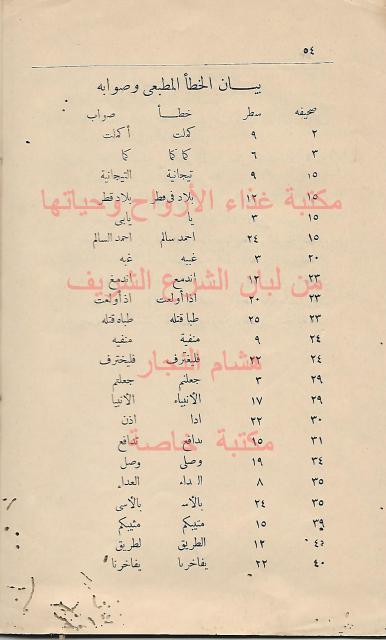 ٥٤
بيـــان الخطأ المطبعى وصوابه
صحيفه سطر خطــأ صواب
٢ ٩ كملت أكملت
٣ ٦ كما كما كما
١٥ ٩ تيجانية التيجانية
١٥ ١٢ بلاد فى قطر بلاد قطر
مكتبة غذاء الأرواح وحياتها
١٥ ٣ يا يابى
١٥ ٢٤ احمد سالم احمد السالم
٢٠ ٣ غيبه غبه
٢٣ ١٢ اندمع اندمغ
من لبان الشرع الشريف
٢٣ ٢٠ اذا أولعت اذ أولعت
٢٣ ٢٥ طبا قتله طباه قتله
٢٤ ٩ منفية منفيه
٢٤ ٢٢ فليغترف فليخترف
هشام النجار
٢٩ ٣ جعلتم جعلتم
٢٩ ١٧ الأنبياء الأنبيا
٣٠ ٢٢ اذا اذن
٣١ ١٥ يدافع تدافع
مكتبة خاصة
٣٤ ١٩ وصلى وصل
٣٥ ٨ العداء
٣٥ ٢٤ بالأسى
٣٩ ١٥ مثيبكم
٤٥ ١٢ الطريق لطريق
٤٠ ٢٢ يفاخرنا